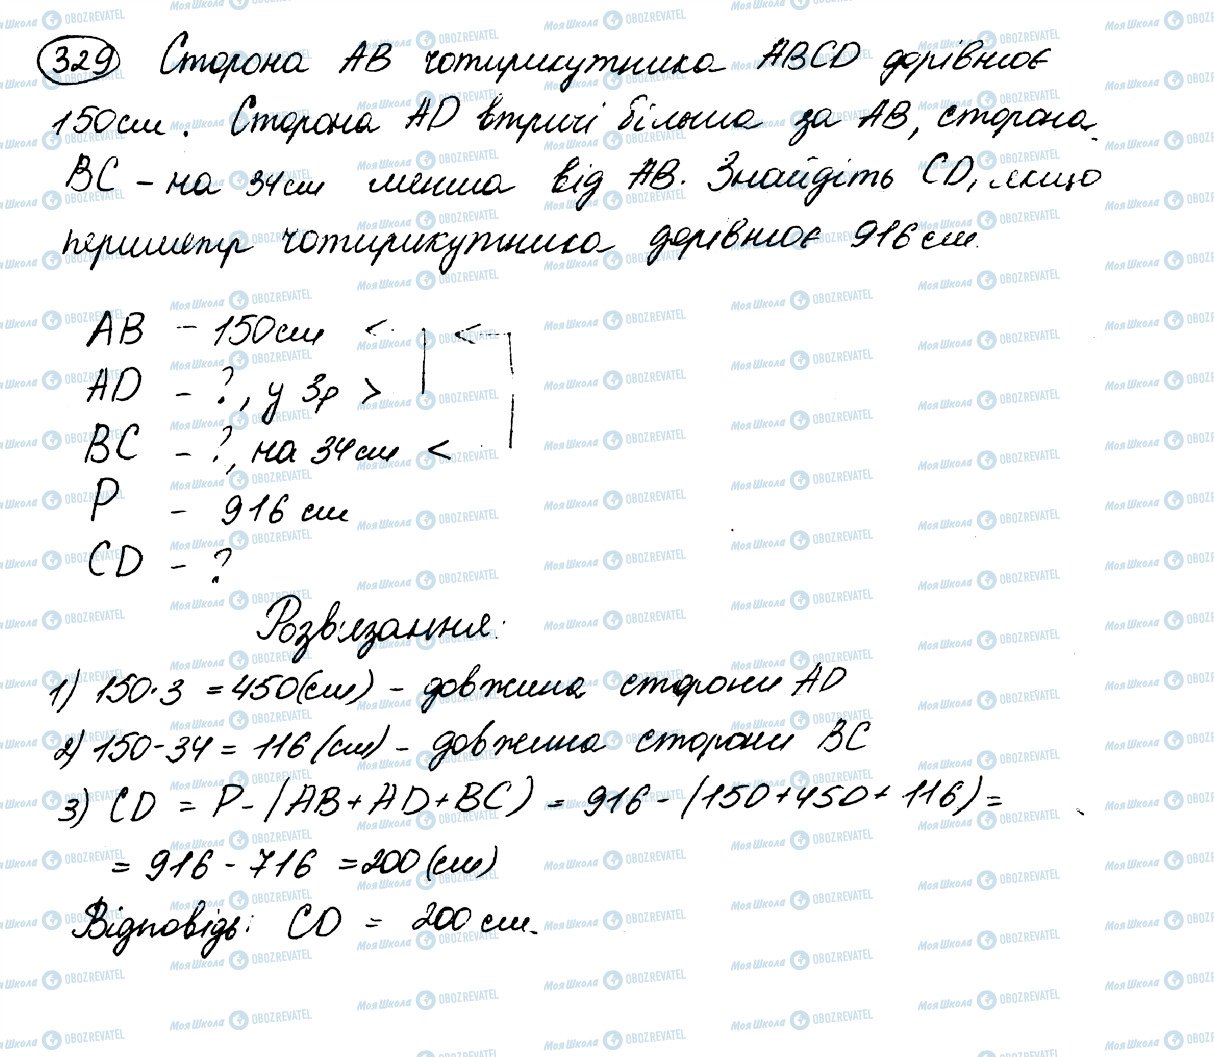 329 Сторона AB чотирикутника ABCD дорівнює
150 см. Сторона AD втричі більша за AB, сторона
BC – на 34 см менша від AB. Знайдіть CD, якщо
периметр чотирикутника дорівнює 916 см.
AB – 150 см <
AD – ?, у 3р >
BC – ?, на 34 см <
P – 916 см
CD – ?
Розв'язання:
1) 150·3 = 450 (см) – довжина сторони AD
2) 150-34 = 116 (см) – довжина сторони BC
3) CD = P - (AB+AD+BC) = 916 - (150+450+116) =
= 916 - 716 = 200 (см)
Відповідь: CD = 200 см.
МояШкола OBOZREVATEL